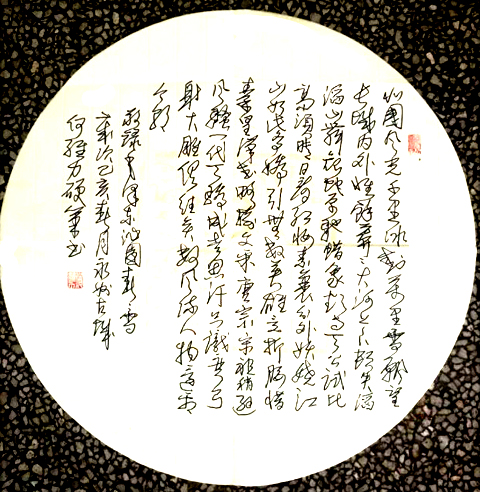 北國风光千里冰封万里雪飘望
长城内外惟馀莽莽大河上下顿失滔
滔山舞银蛇原驰蜡象欲与天公试比
高须晴日看红妆素裹分外妖娆江
山如此多娇引無数英雄竞折腰惜
秦皇汉武略输文采唐宗宋祖稍逊
风骚一代天骄成吉思汗只识弯弓
射大雕俱往矣数风流人物还看
今朝
敬録毛泽东沁園春雪
岁次己亥春月永州古城
何力硬笔书